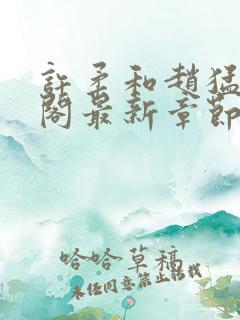 許柔和趙猛
閣最新章節
哈哈草稿
未經同意禁止轉載